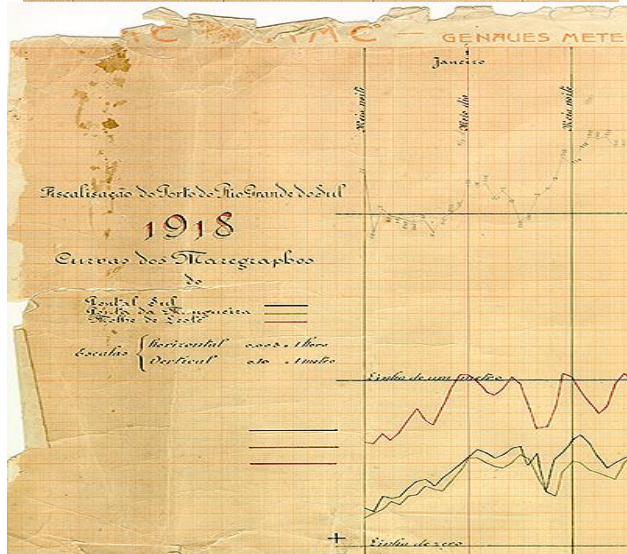 GENAUES METE
Janeiro
Meia noite
Meio dia
Meia noite
Fiscalisação do Porto do Rio Grande do Sul
1918
Curvas dos Maregraphos
do
Pontal Sul
Ponta da Mangueira
Molhe de Leste
Escalas
Horizontal 0.005 = 1 hora
Vertical 0.10 = 1 metro
Linha de um metro
Linha de zero